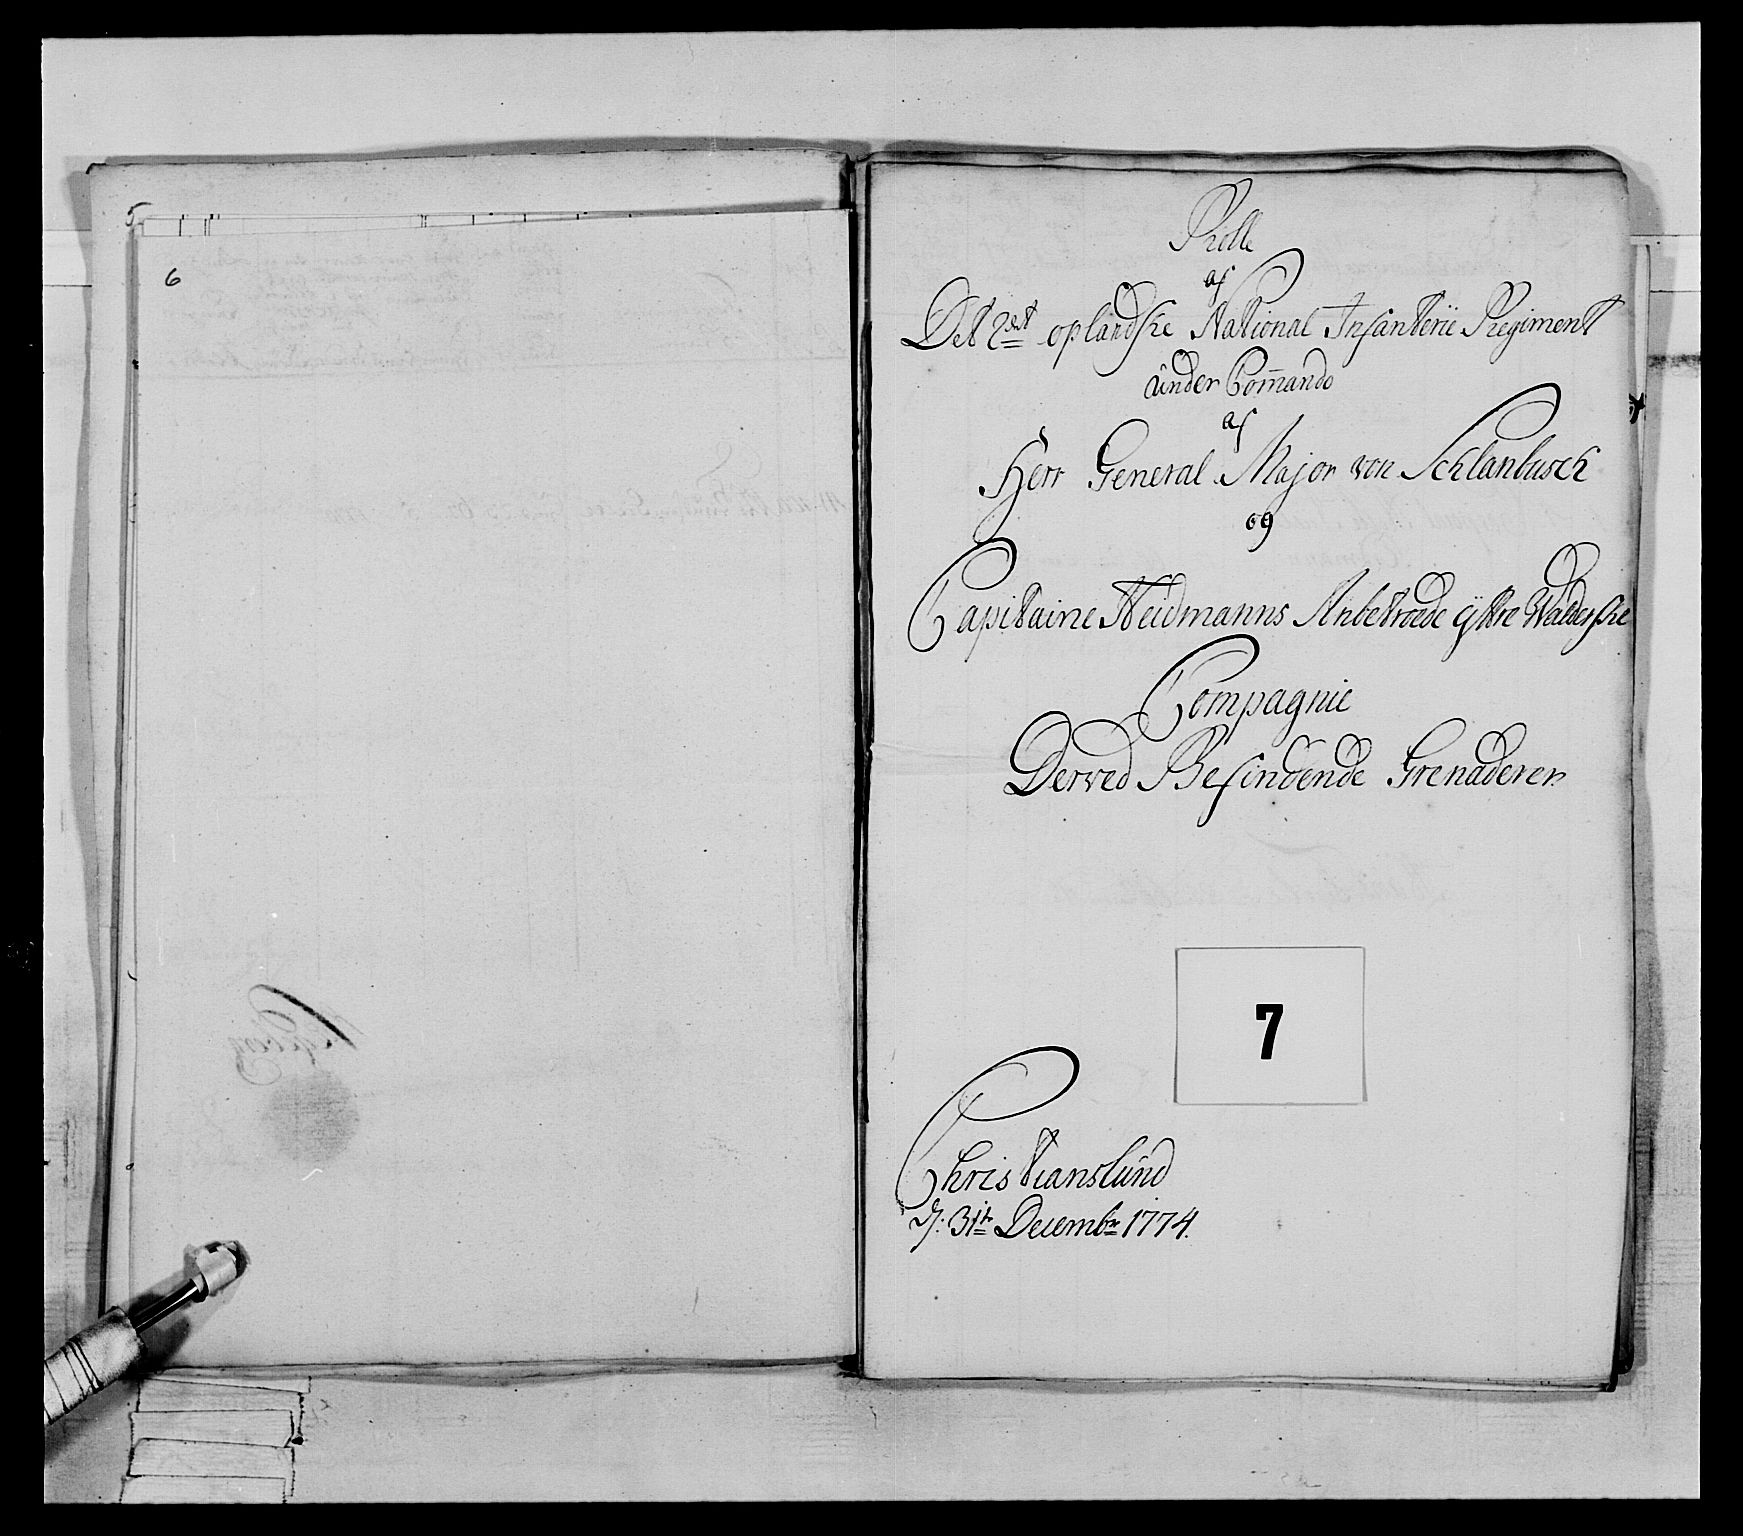 5
6
Rolle
af
Det 2det oplandske National Infanterie Regiment
under Com̄ando
af
Herr General Major von Schlanbusch
og
Capitaine Neidmanns Anbetroede ÿttre Walderske
Compagnie
Derved Befindende Grenaderer.
7
Christianslund
d: 31te Decembr 1774.